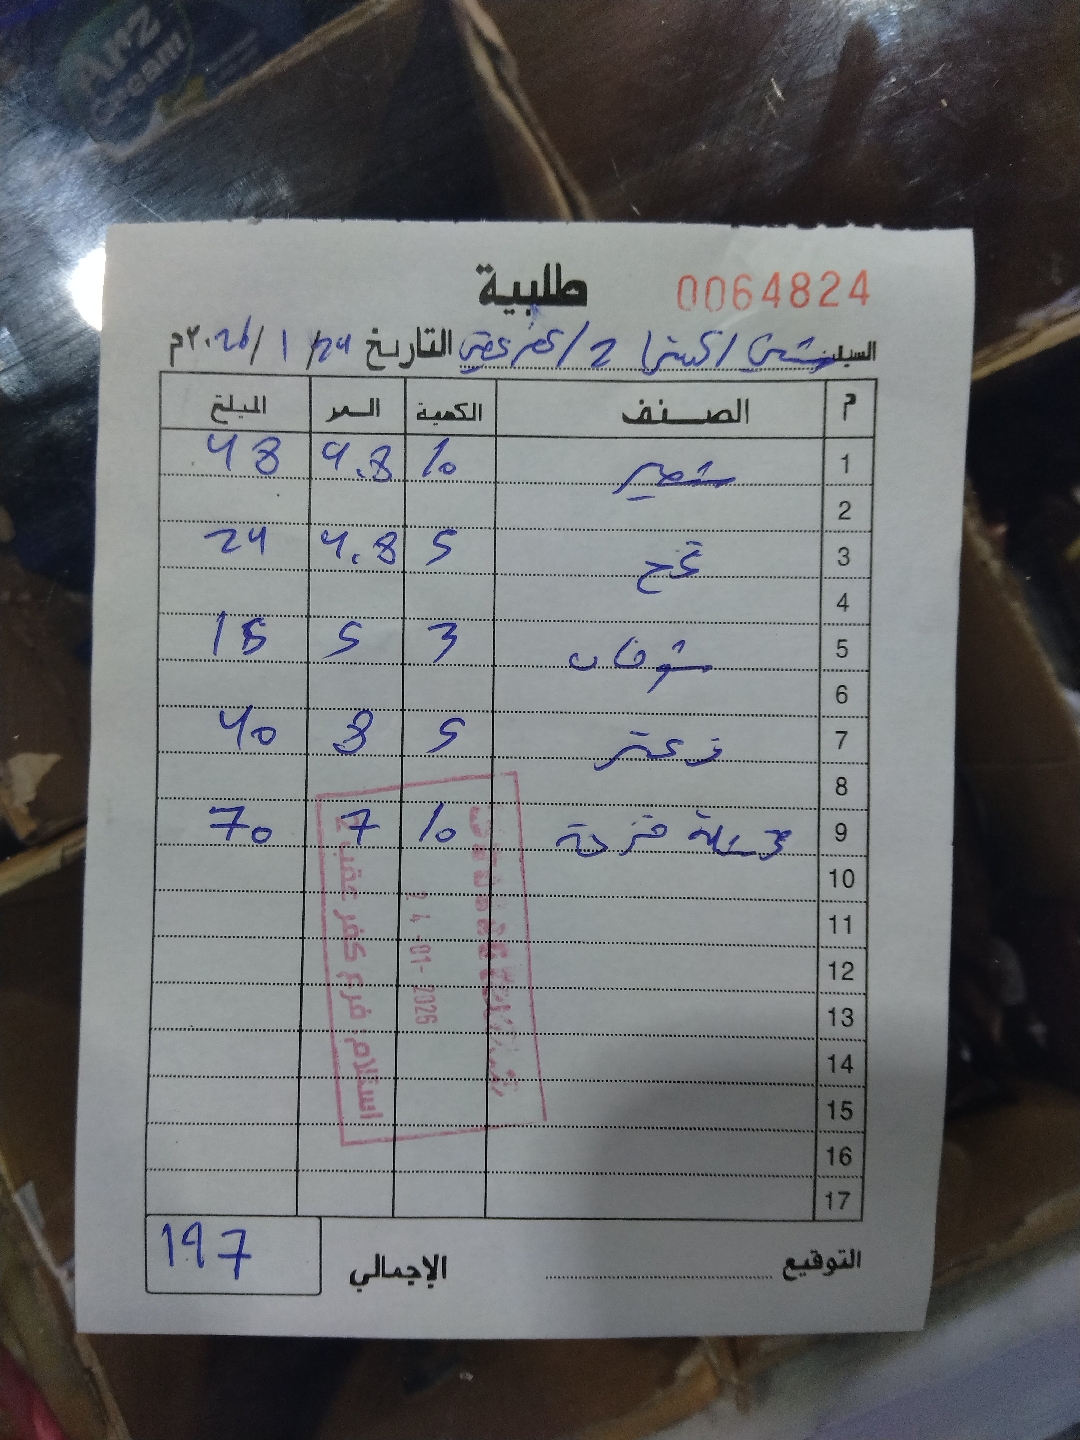 Arz Cream
طلبية 0064824
السيد: 2 / التاريخ 24/ 1 /2026م
م الصنف الكمية السعر المبلغ
1 شعير 10 4.8 48
2
3 قمح 5 4.8 24
4
5 شوفان 3 5 15
6
7 زعتر 5 8 40
8
9 10 7 70
10
11
12
13
14
15
16
17
24-01-2026
استلام فرع كفر عقب 2
التوقيع الإجمالي 197